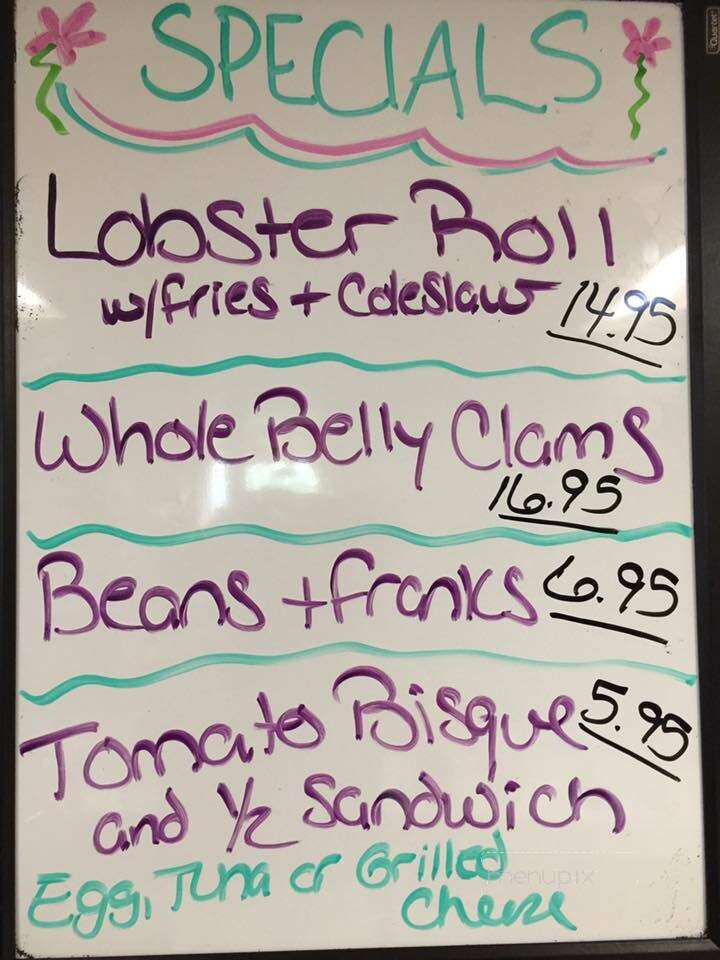 SPECIALS
Lobster Roll
w/fries + Coleslaw 14.95
Whole Belly Clams
16.95
Beans + franks 6.95
Tomato Bisque 5.95
and 1/2 Sandwich
Egg, Tuna or Grilled
Cheese
menupix
Quartet